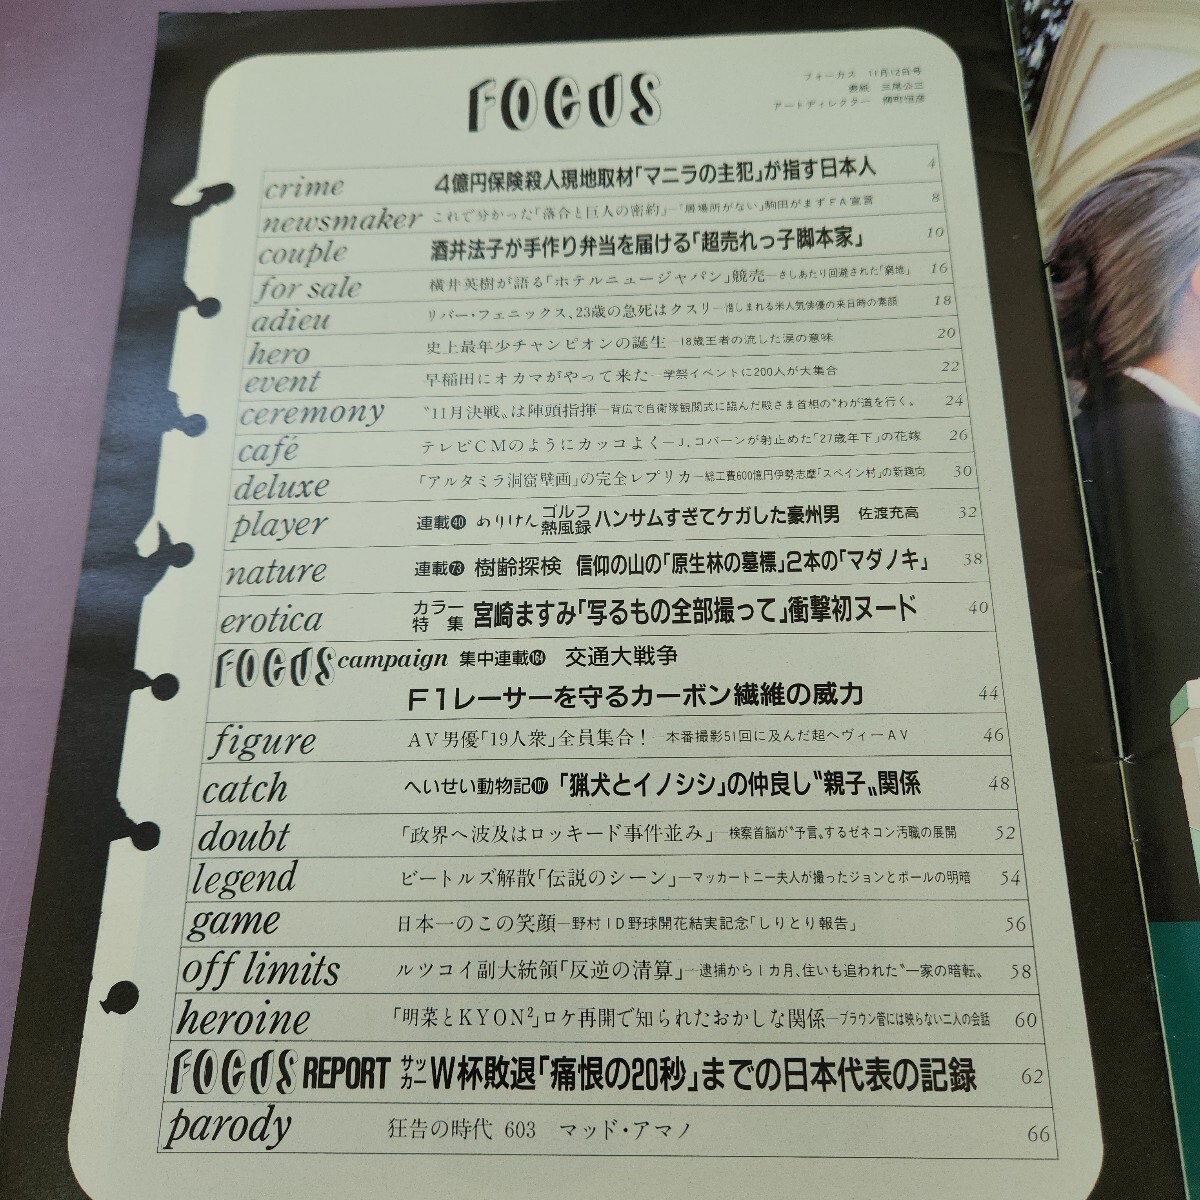 FOCUS
フォーカス 11月12日号
表紙 三尾公三
アートディレクター
crime 4億円保険殺人現地取材「マニラの主犯」が指す日本人 4
newsmaker これで分かった「落合と巨人の密約」―「居場所がない」駒田がまずFA宣言 8
couple 酒井法子が手作り弁当を届ける「超売れっ子脚本家」 10
for sale 横井英樹が語る「ホテルニュージャパン」競売―さしあたり回避された「窮地」 16
adieu リバー・フェニックス、23歳の急死はクスリ―惜しまれる米人気俳優の来日時の素顔 18
hero 史上最年少チャンピオンの誕生―18歳王者の流した涙の意味 20
event 早稲田にオカマがやって来た―学祭イベントに200人が大集合 22
ceremony 〝11月決戦〟は陣頭指揮―背広で自衛隊観閲式に臨んだ殿さま首相の〝わが道を行く〟 24
café テレビCMのようにカッコよく―J.コバーンが射止めた「27歳年下」の花嫁 26
deluxe 「アルタミラ洞窟壁画」の完全レプリカ―総工費600億円伊勢志摩「スペイン村」の新趣向 30
player 連載40 ありけん ゴルフ熱風録 ハンサムすぎてケガした豪州男 佐渡充高 32
nature 連載73 樹齢探検 信仰の山の「原生林の墓標」2本の「マダノキ」 38
erotica カラー特集 宮崎ますみ「写るもの全部撮って」衝撃初ヌード 40
FOCUS campaign 集中連載164 交通大戦争
F1レーサーを守るカーボン繊維の威力 44
figure AV男優「19人衆」全員集合！―本番撮影51回に及んだ超ヘヴィーAV 46
catch へいせい動物記107 「猟犬とイノシシ」の仲良し〝親子〟関係 48
doubt 「政界へ波及はロッキード事件並み」―検察首脳が〝予言〟するゼネコン汚職の展開 52
legend ビートルズ解散「伝説のシーン」―マッカートニー夫人が撮ったジョンとポールの明暗 54
game 日本一のこの笑顔―野村ID野球開花結実記念「しりとり報告」 56
off limits ルツコイ副大統領「反逆の清算」―逮捕から1カ月、住いも追われた〝一家の暗転〟 58
heroine 「明菜とKYON²」ロケ再開で知られたおかしな関係―ブラウン管には映らない二人の会話 60
FOCUS REPORT サッカーW杯敗退「痛恨の20秒」までの日本代表の記録 62
parody 狂告の時代 603 マッド・アマノ 66